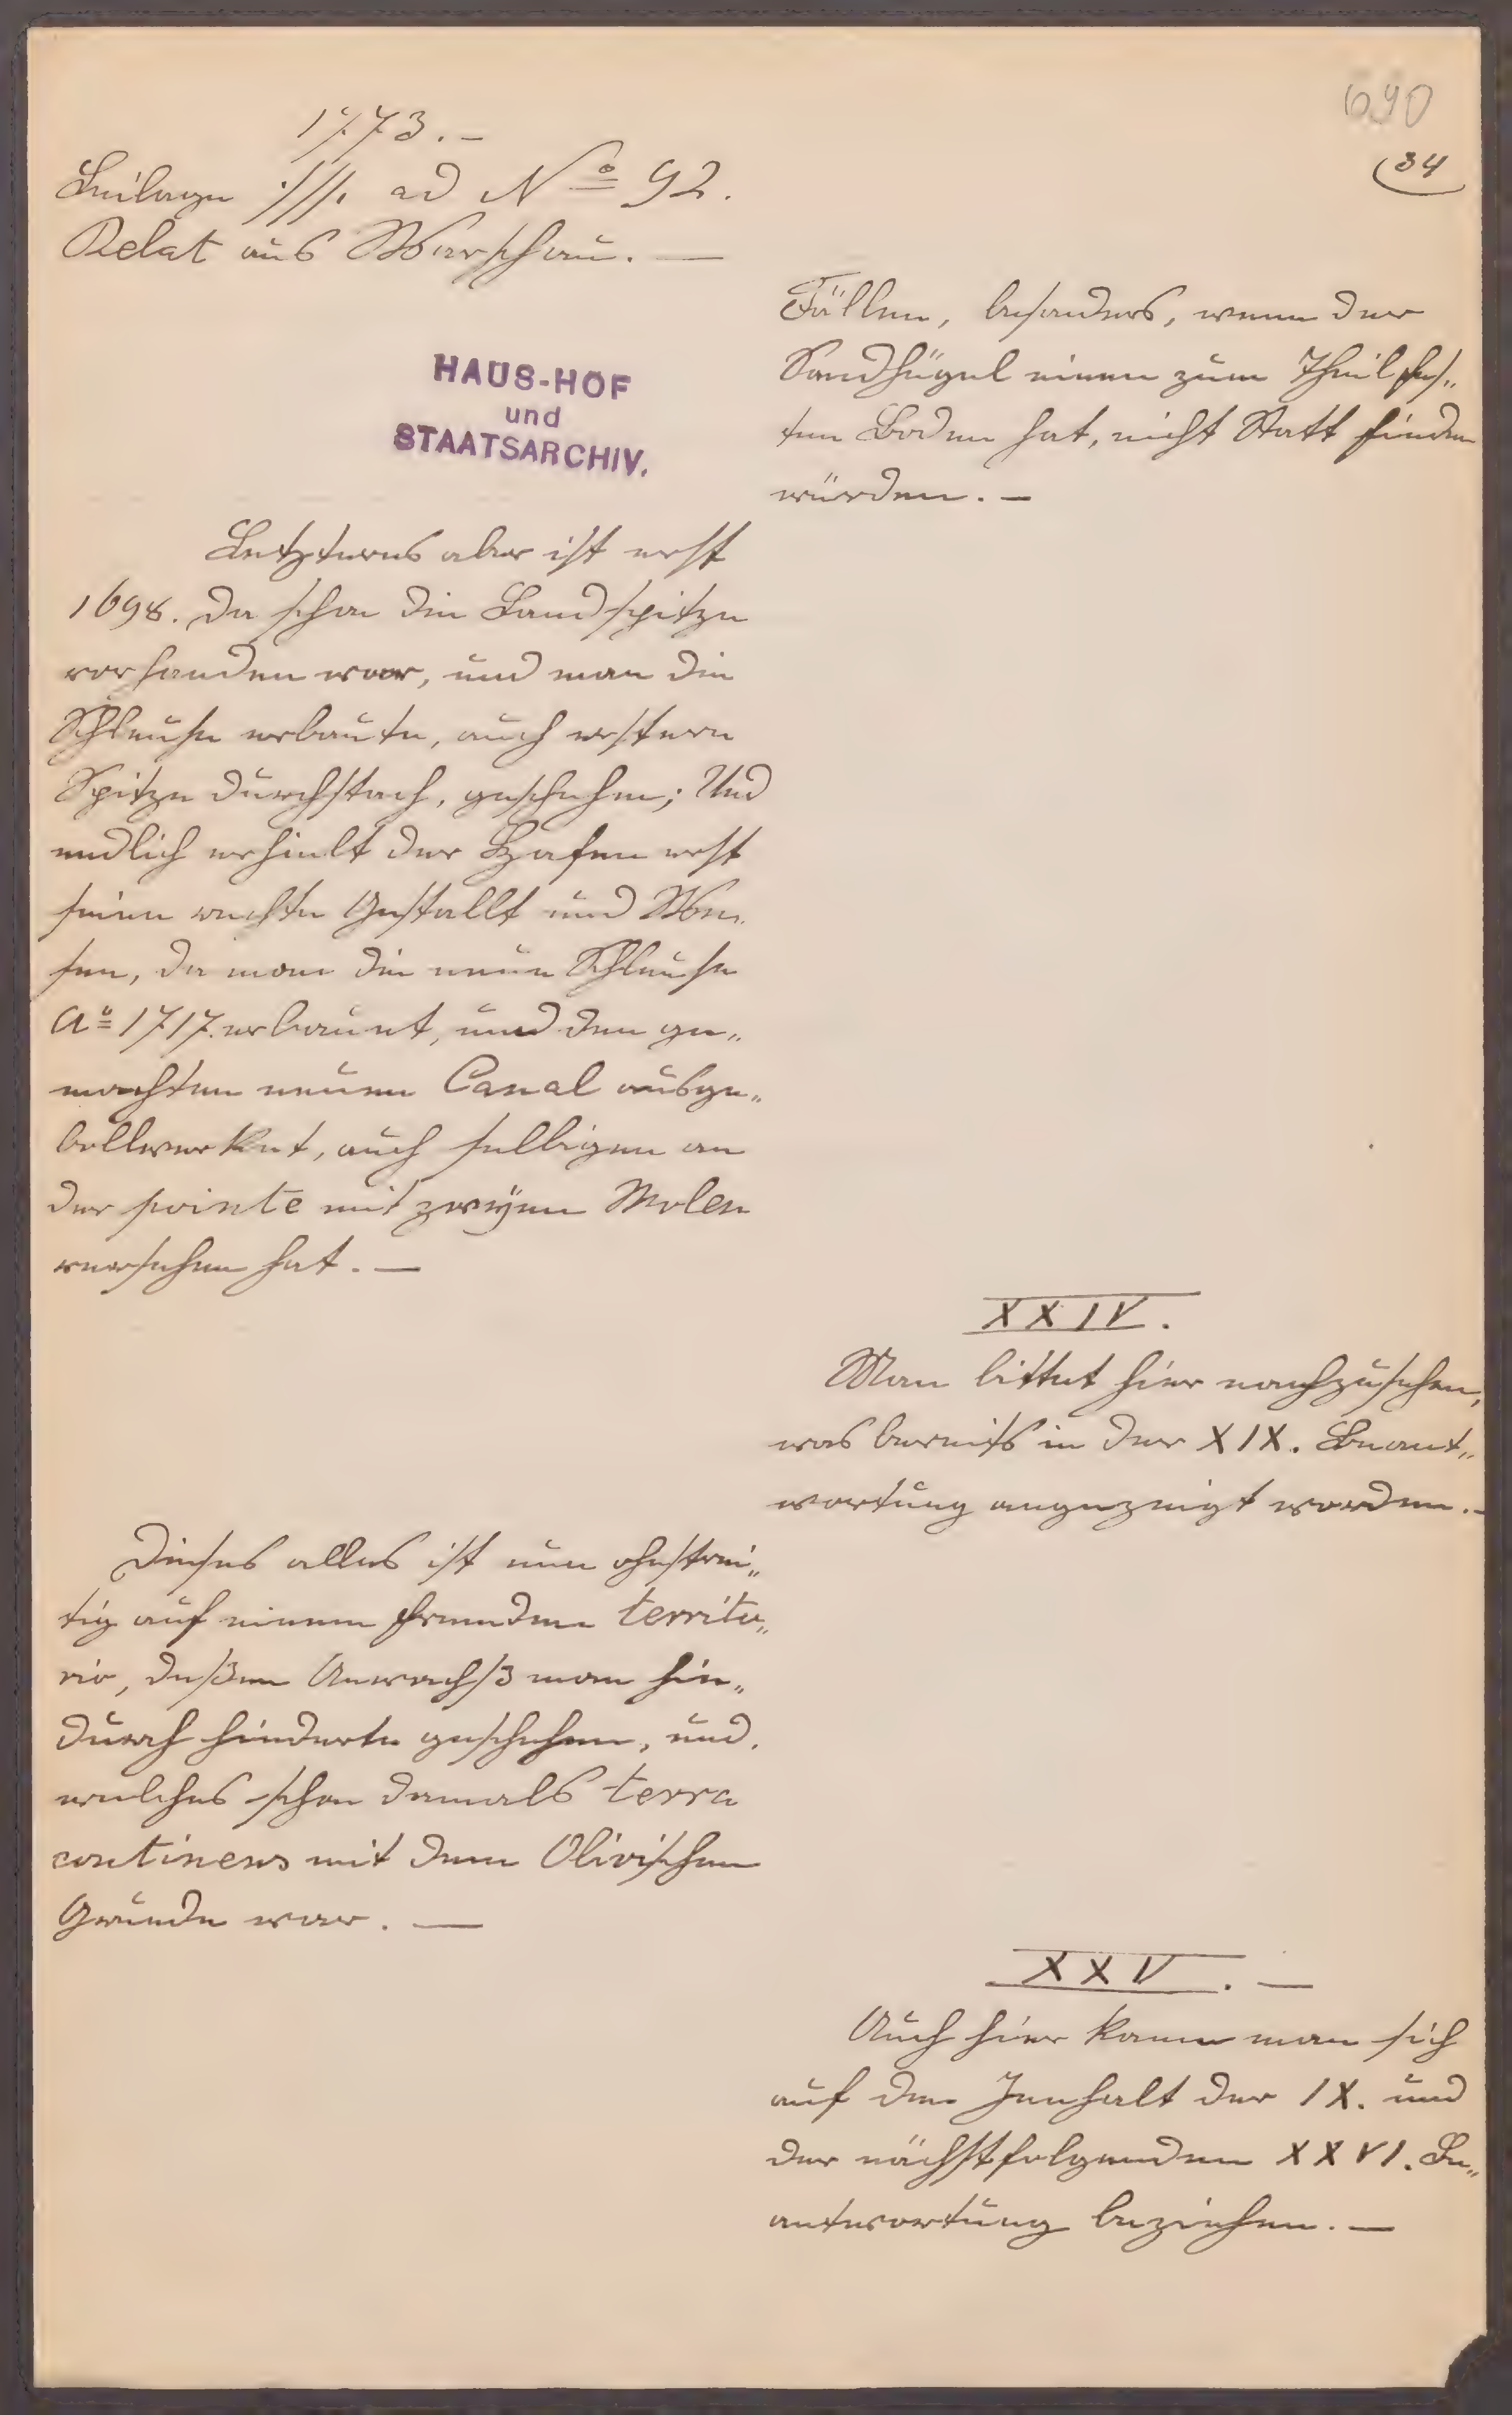 690
34
1773.-
Beilage ·///. ad No 92.
Relat aus Warschau. —
HAUS-HOF
und
STAATSARCHIV.
Letzteres aber ist erst
1698. da schon die Landspitze
vorhanden war, und man die
Schleuse erbaute, auch erstere
Spitze durchstach, geschehen; Und
endlich erhielt der Hafen erst
seine rechte Gestallt und We„
sen, da man die neue Schleuse
Ao 1717. erbauet, und den ge„
machten neuen Canal ausge„
bollwerket, auch selbigen an
der pointe mit zweÿen Molen
versehen hat. —
Dieses alles ist nun ohnstrei„
tig auf einem fremden territo„
rio, deßen Anwachß man hie„
durch hinderte geschehen, und
welches schon damals terra
continens mit dem Olivischen
Grunde war. —
Fällen, besonders, wenn der
Sandhügel einen zum Theil fes„
ten Boden hat, nicht Statt finden
würden. —
XXIV.
Man bittet hier nachzusehen,
was bereits in der XIX. Beant„
wortung angezeigt worden. -
XXV. —
Auch hier kann man sich
auf den Innhalt der IX. und
der nächstfolgenden XXVI. Be„
antwortung beziehen. —